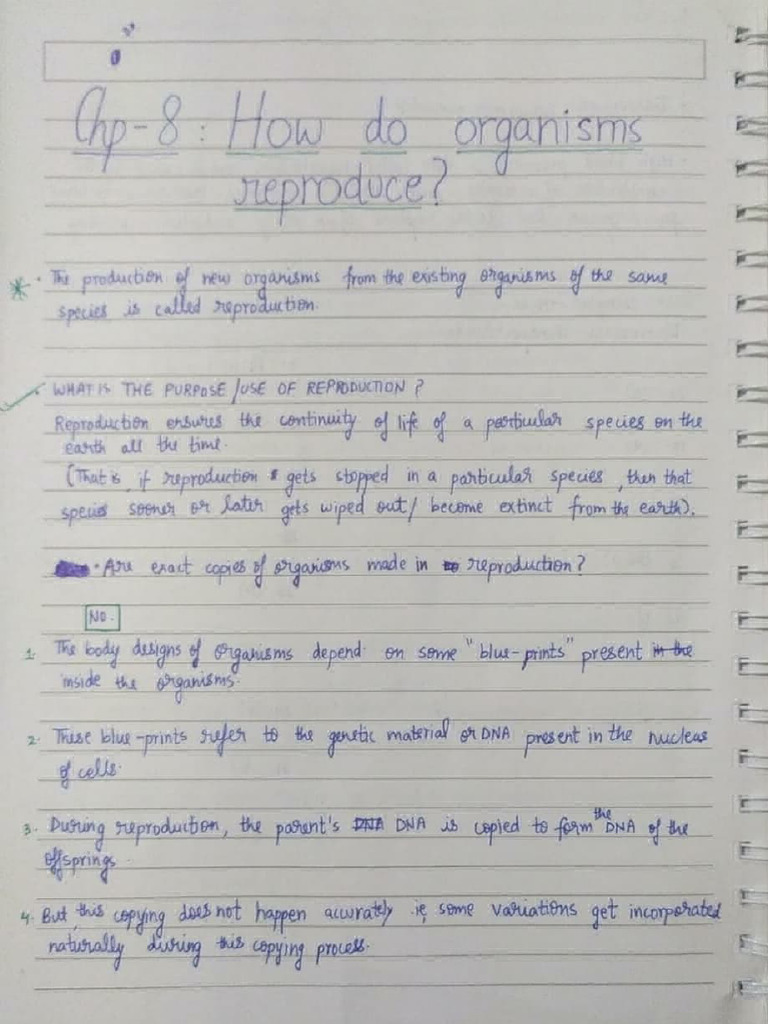 Chp-8: How do organisms
reproduce?
• The production of new organisms from the existing organisms of the same
species is called reproduction.
WHAT IS THE PURPOSE/USE OF REPRODUCTION?
Reproduction ensures the continuity of life of a particular species on the
earth all the time.
(That is, if reproduction gets stopped in a particular species, then that
species sooner or later gets wiped out/ become extinct from the earth).
• Are exact copies of organisms made in reproduction?
NO.
1. The body designs of organisms depend on some "blue-prints" present in the
inside the organisms.
2. These blue-prints refer to the genetic material or DNA present in the nucleus
of cells.
3. During reproduction, the parent's DNA DNA is copied to form the DNA of the
offsprings.
4. But this copying does not happen accurately ie, some variations get incorporated
naturally during this copying process.